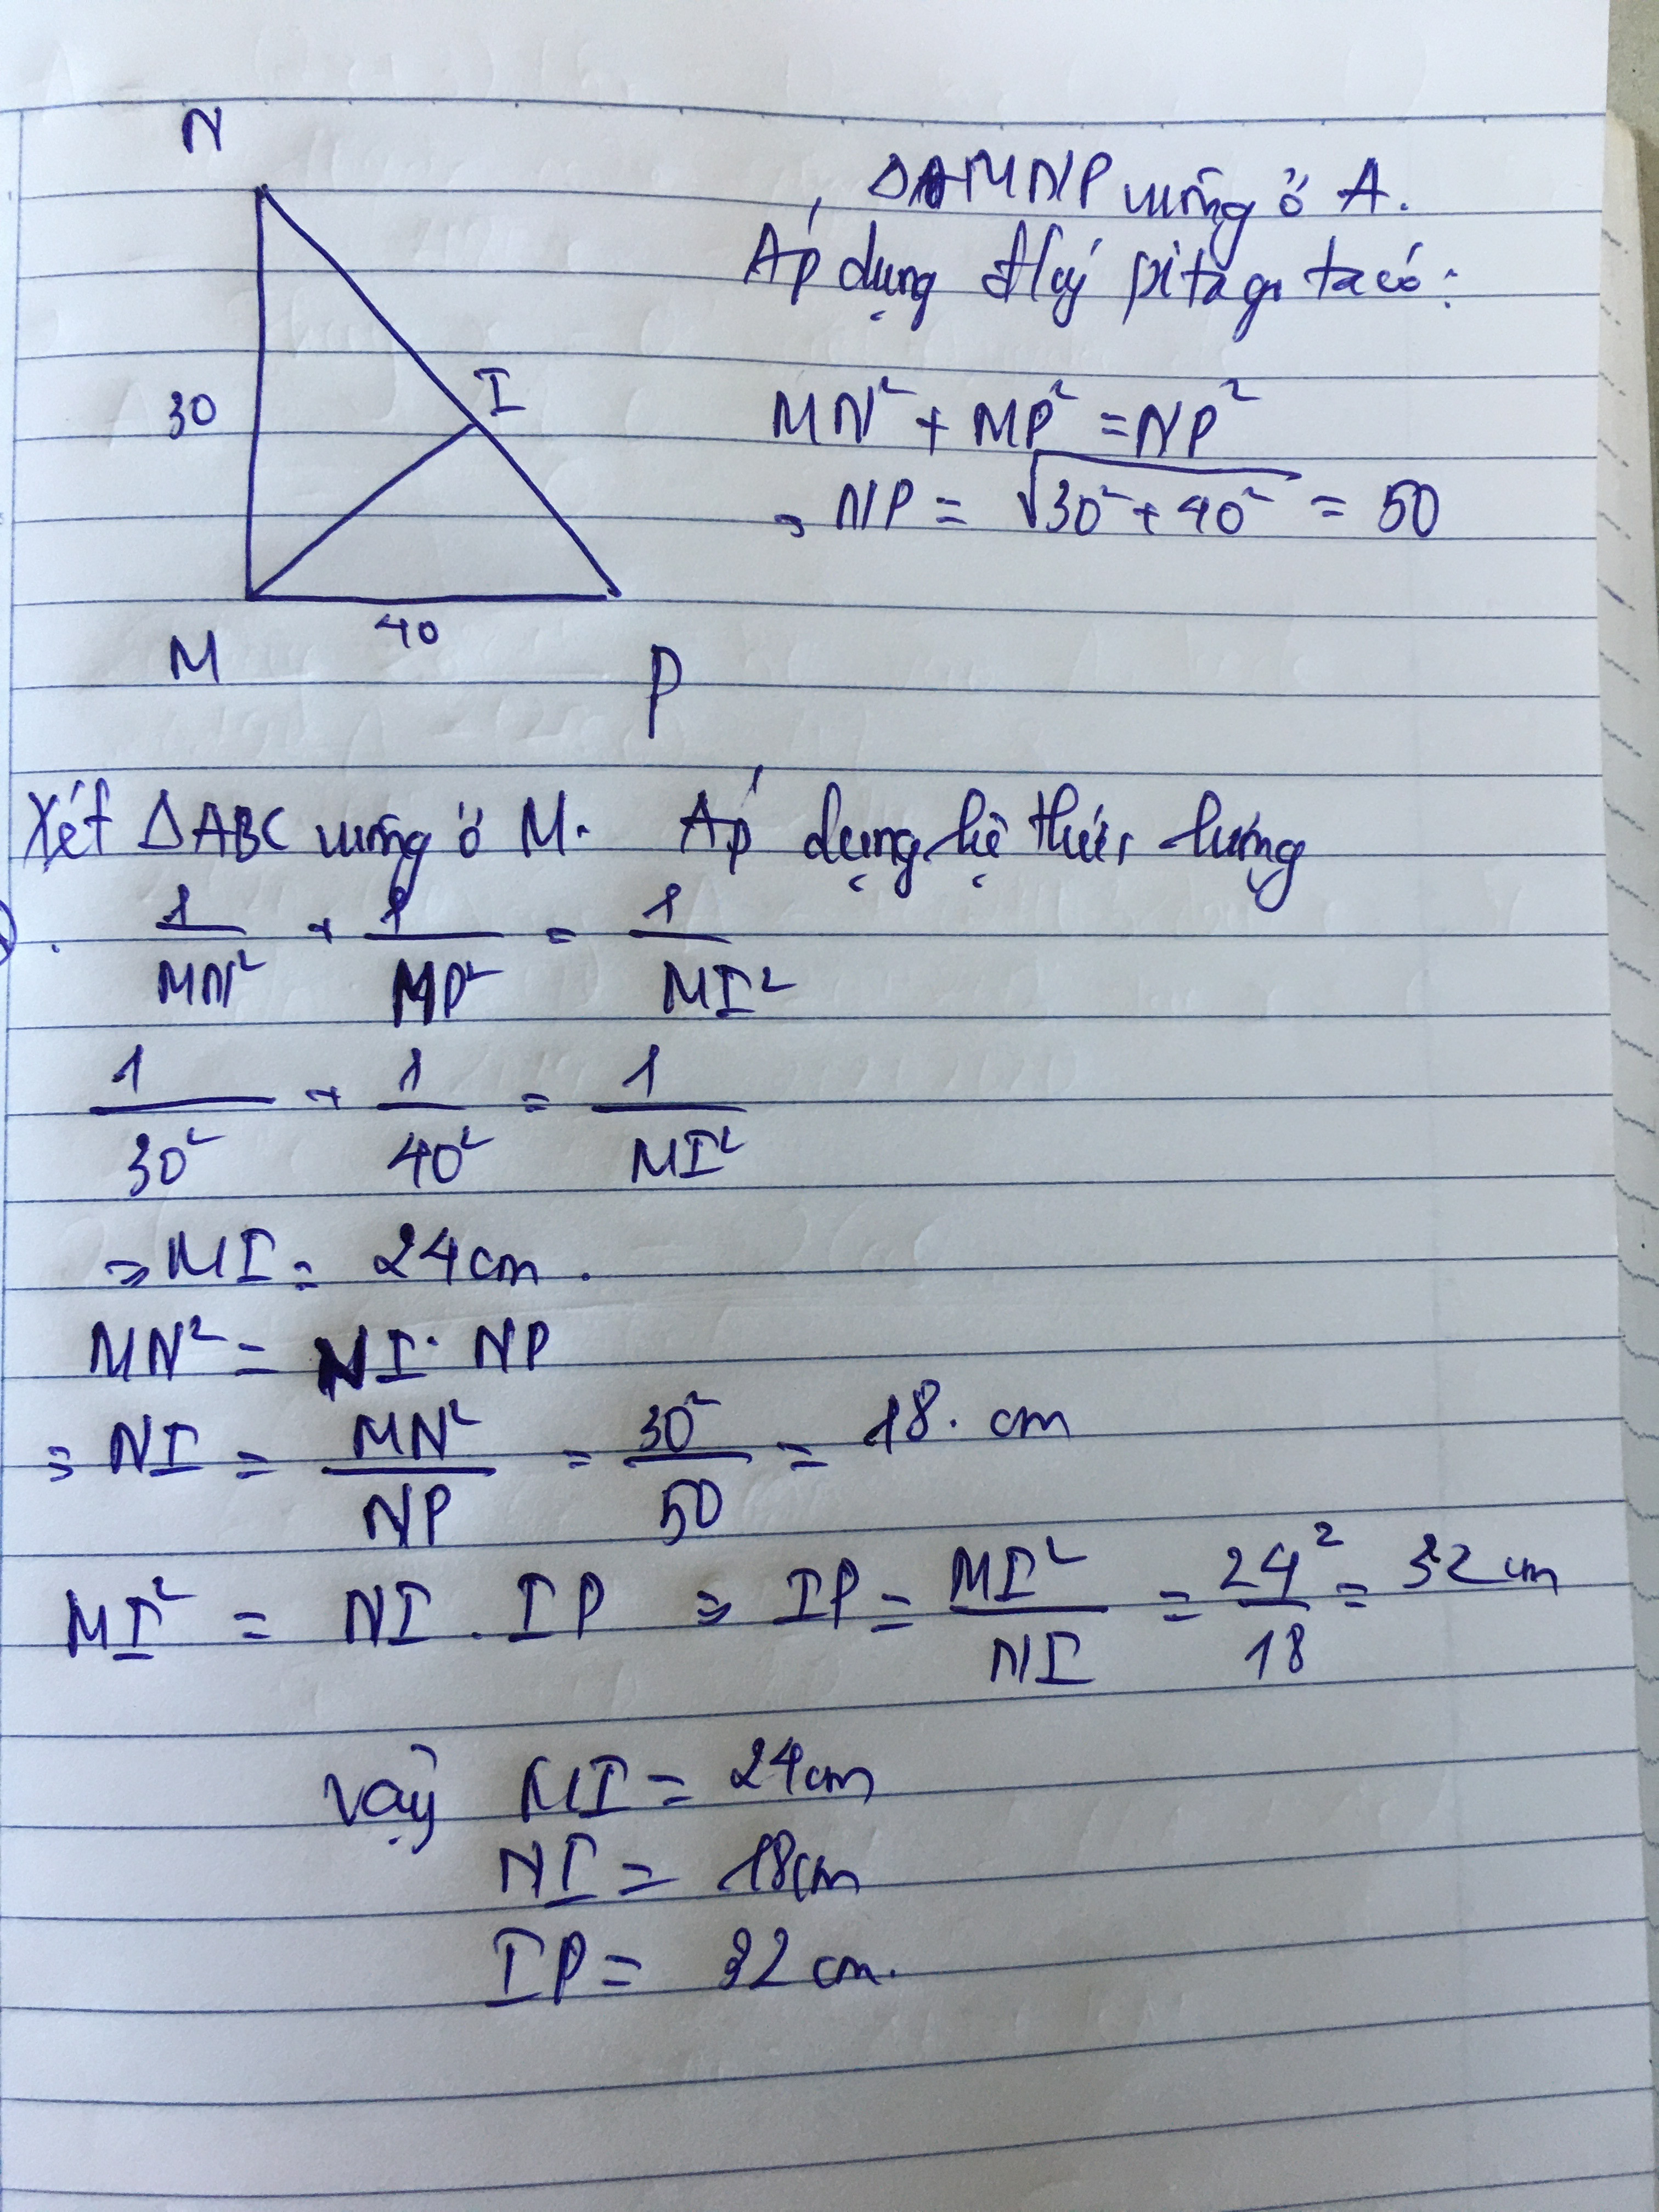 N
ΔMNP vuông ở A.
Áp dụng đlý pitago ta có:
30
I
MN² + MP² = NP²
⇒ NP = √30² + 40² = 50
40
M
P
Xét ΔABC vuông ở M. Áp dụng hệ thức lượng
1/MN² + 1/MP² = 1/MI²
1/30² + 1/40² = 1/MI²
⇒ MI = 24cm.
MN² = NI. NP
⇒ NI = MN²/NP = 30²/50 = 18. cm
MI² = NI . IP ⇒ IP = MI²/NI = 24²/18 = 32 cm
Vậy MI = 24cm
NI = 18cm
IP = 32 cm.